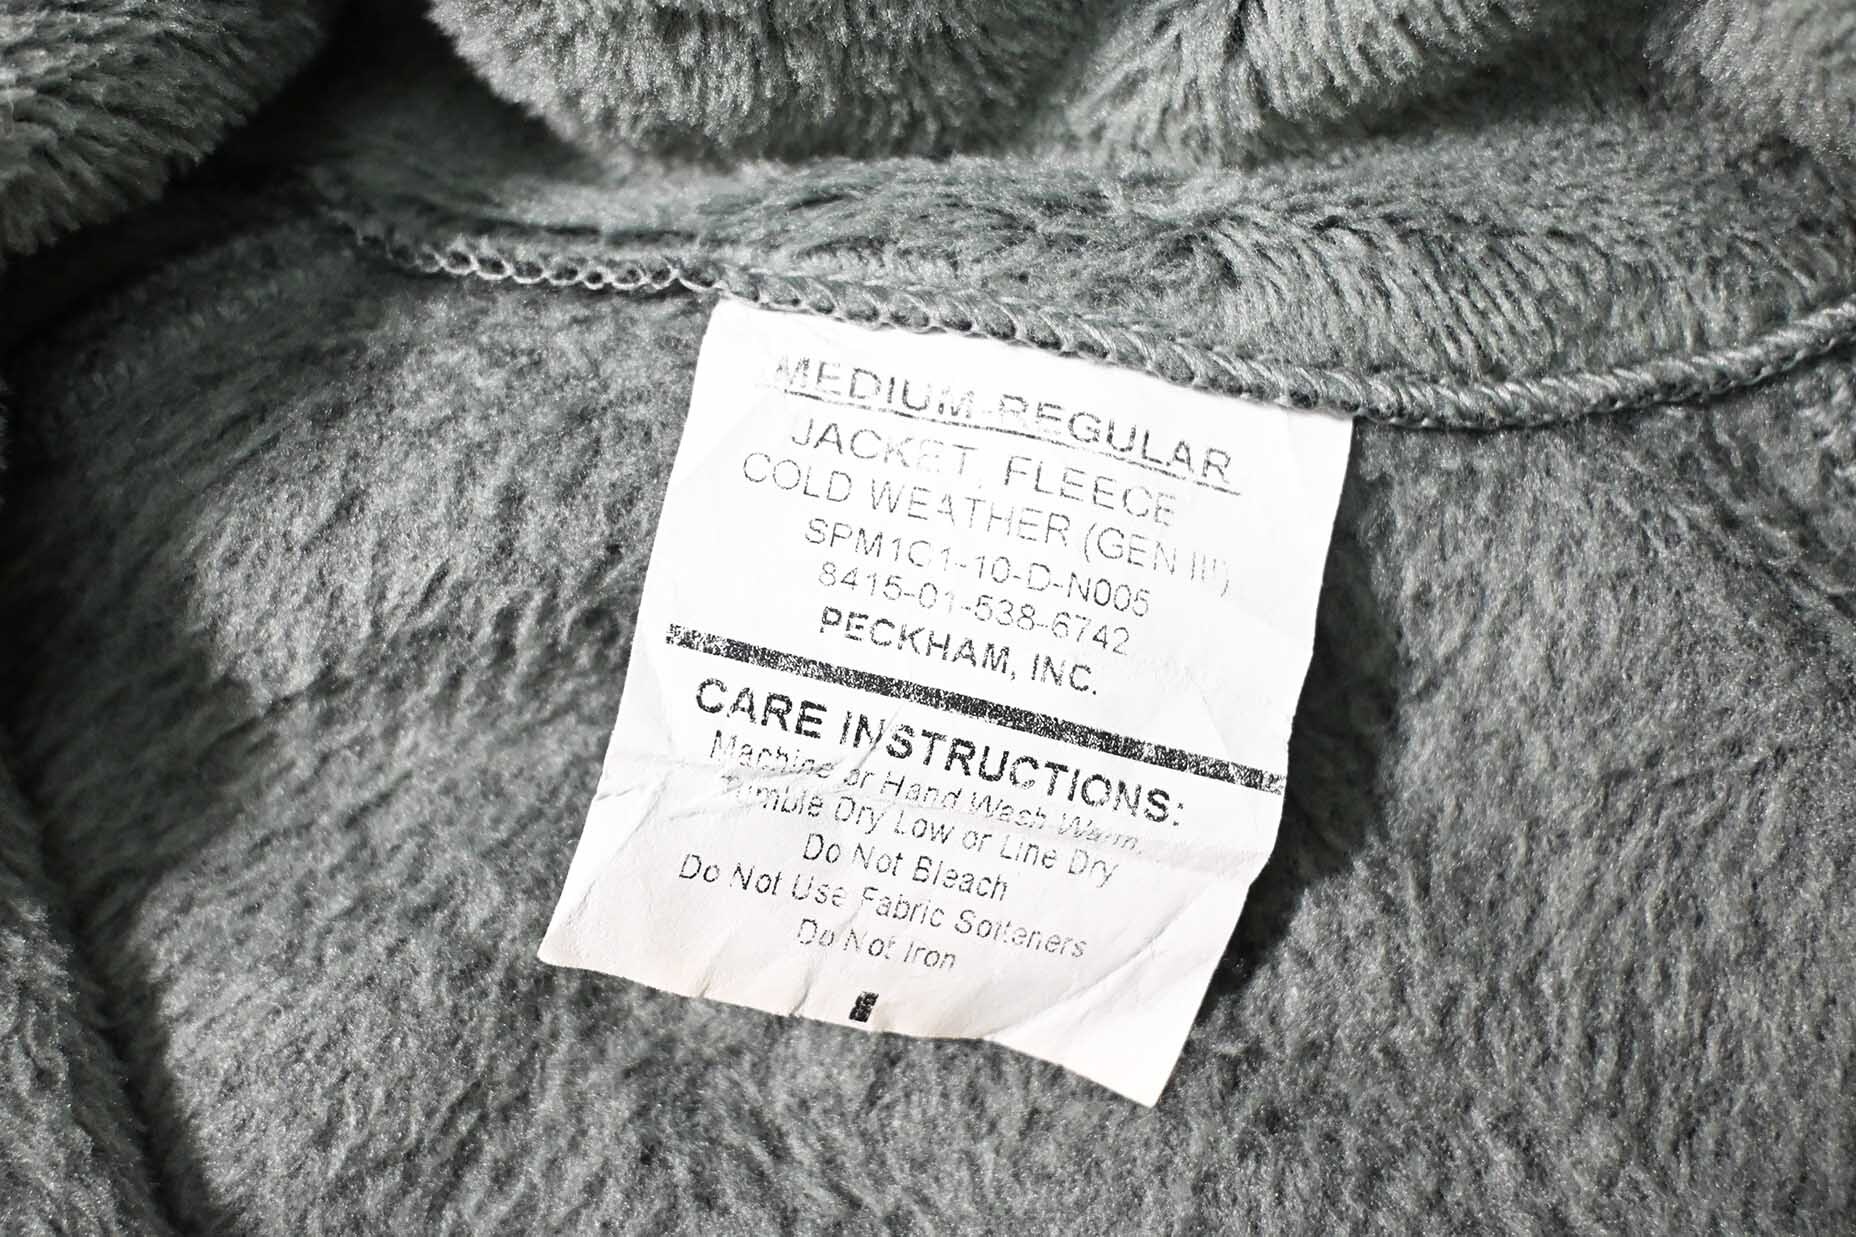 MEDIUM-REGULAR
JACKET, FLEECE
COLD WEATHER (GEN III)
SPM1C1-10-D-N005
8415-01-538-6742
PECKHAM, INC.
CARE INSTRUCTIONS:
Machine or Hand Wash Warm.
Tumble Dry Low or Line Dry
Do Not Bleach
Do Not Use Fabric Softeners
Do Not Iron